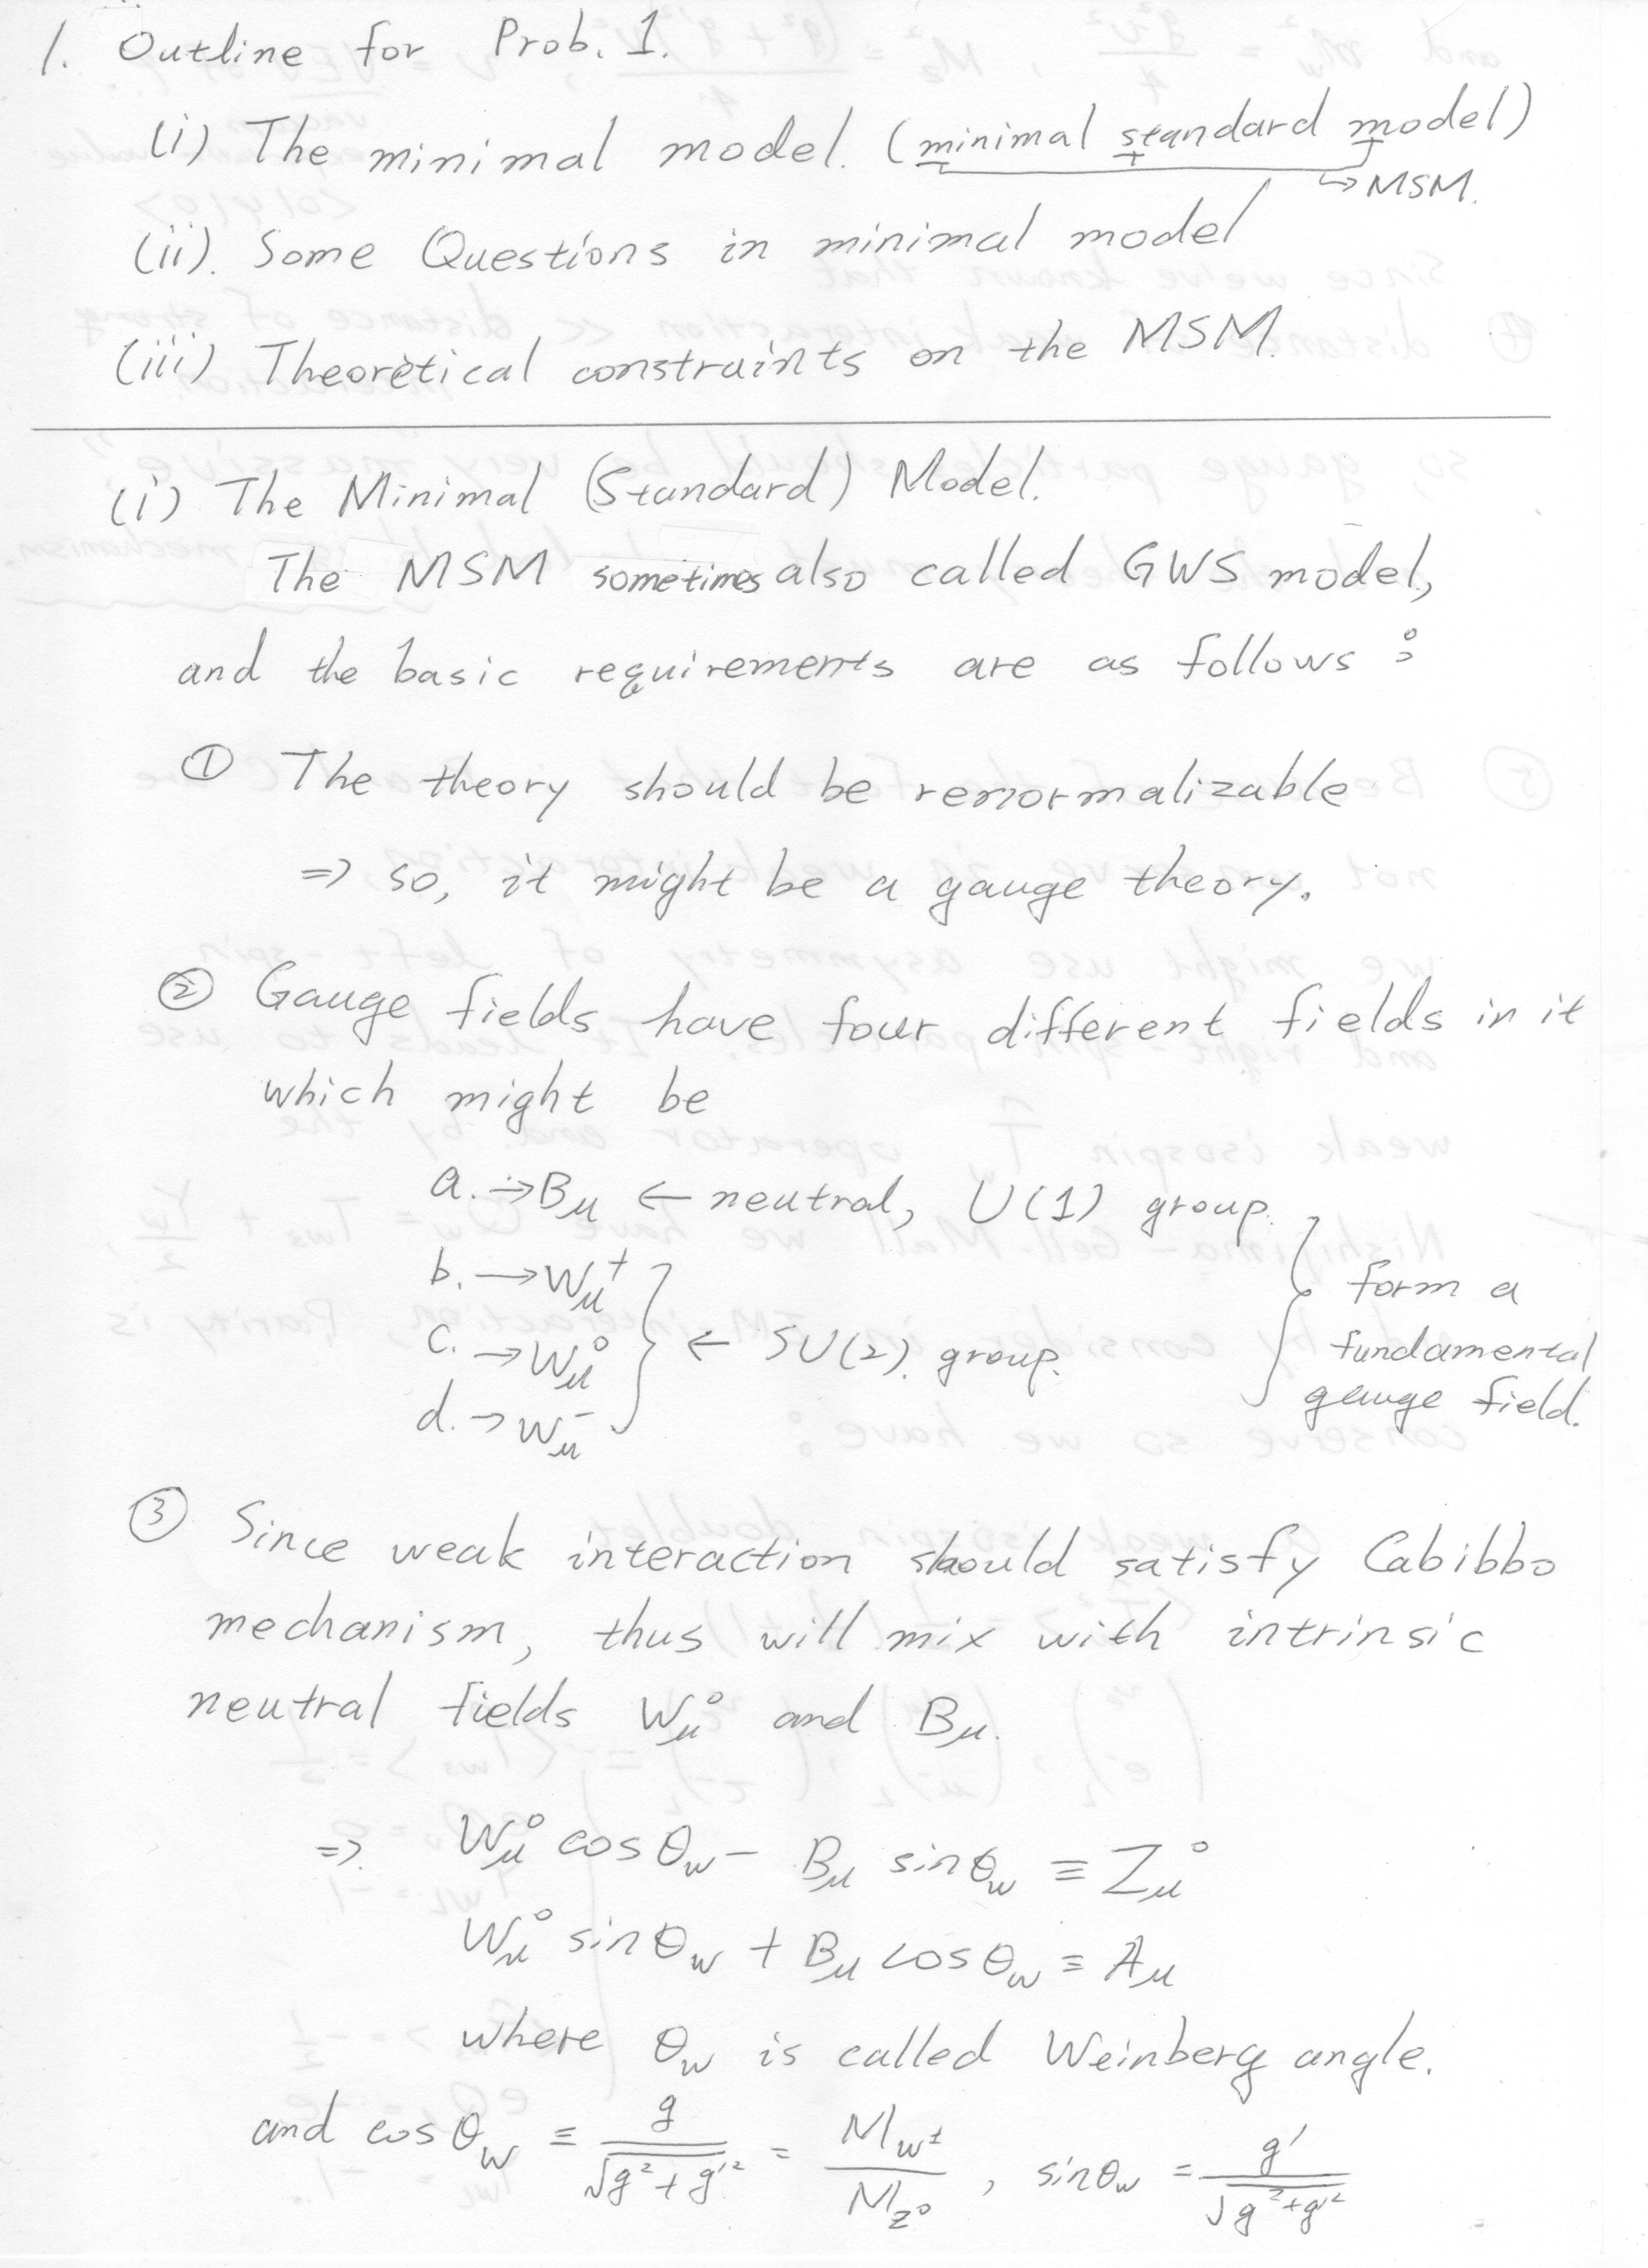 1. Outline for Prob. 1.
(i) The minimal model. (minimal standard model)
↳ MSM.
(ii). Some Questions in minimal model
(iii) Theoretical constraints on the MSM.
(i) The Minimal (Standard) Model.
The MSM sometimes also called GWS model,
and the basic requirements are as follows :
① The theory should be renormalizable
⇒ so, it might be a gauge theory.
② Gauge fields have four different fields in it
which might be
a. → Bμ ← neutral, U(1) group.
b. → Wμ⁺
c. → Wμ⁰ } ← SU(2). group.
d. → Wμ⁻
} form a
fundamental
gauge field.
③ Since weak interaction should satisfy Cabibbo
mechanism, thus will mix with intrinsic
neutral fields Wμ⁰ and Bμ.
⇒. Wμ⁰ cos θw − Bμ sin θw ≡ Zμ⁰
Wμ⁰ sin θw + Bμ cos θw ≡ Aμ
where θw is called Weinberg angle.
and cos θw ≡ g / √(g² + g'²) = Mw± / Mz⁰ , sin θw = g' / √(g² + g'²)